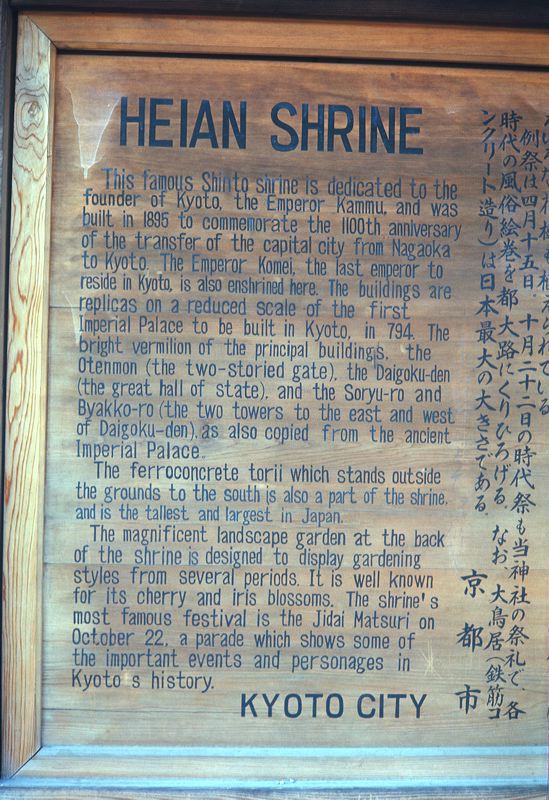 HEIAN SHRINE
This famous Shinto shrine is dedicated to the
founder of Kyoto, the Emperor Kammu, and was
built in 1895 to commemorate the 1100th anniversary
of the transfer of the capital city from Nagaoka
to Kyoto. The Emperor Komei, the last emperor to
reside in Kyoto, is also enshrined here. The buildings are
replicas on a reduced scale of the first
Imperial Palace to be built in Kyoto, in 794. The
bright vermilion of the principal buildings, the
Otenmon (the two-storied gate), the Daigoku-den
(the great hall of state), and the Soryu-ro and
Byakko-ro (the two towers to the east and west
of Daigoku-den), as also copied from the ancient
Imperial Palace.
The ferroconcrete torii which stands outside
the grounds to the south is also a part of the shrine,
and is the tallest and largest in Japan.
The magnificent landscape garden at the back
of the shrine is designed to display gardening
styles from several periods. It is well known
for its cherry and iris blossoms. The shrine's
most famous festival is the Jidai Matsuri on
October 22, a parade which shows some of
the important events and personages in
Kyoto's history.
KYOTO CITY
例祭は四月十五日、十月二十二日の時代祭も当神社の祭礼で、各
時代の風俗絵巻を都大路にくりひろげる。なお、大鳥居(鉄筋コ
ンクリート造り)は日本最大の大きさである。
京都市